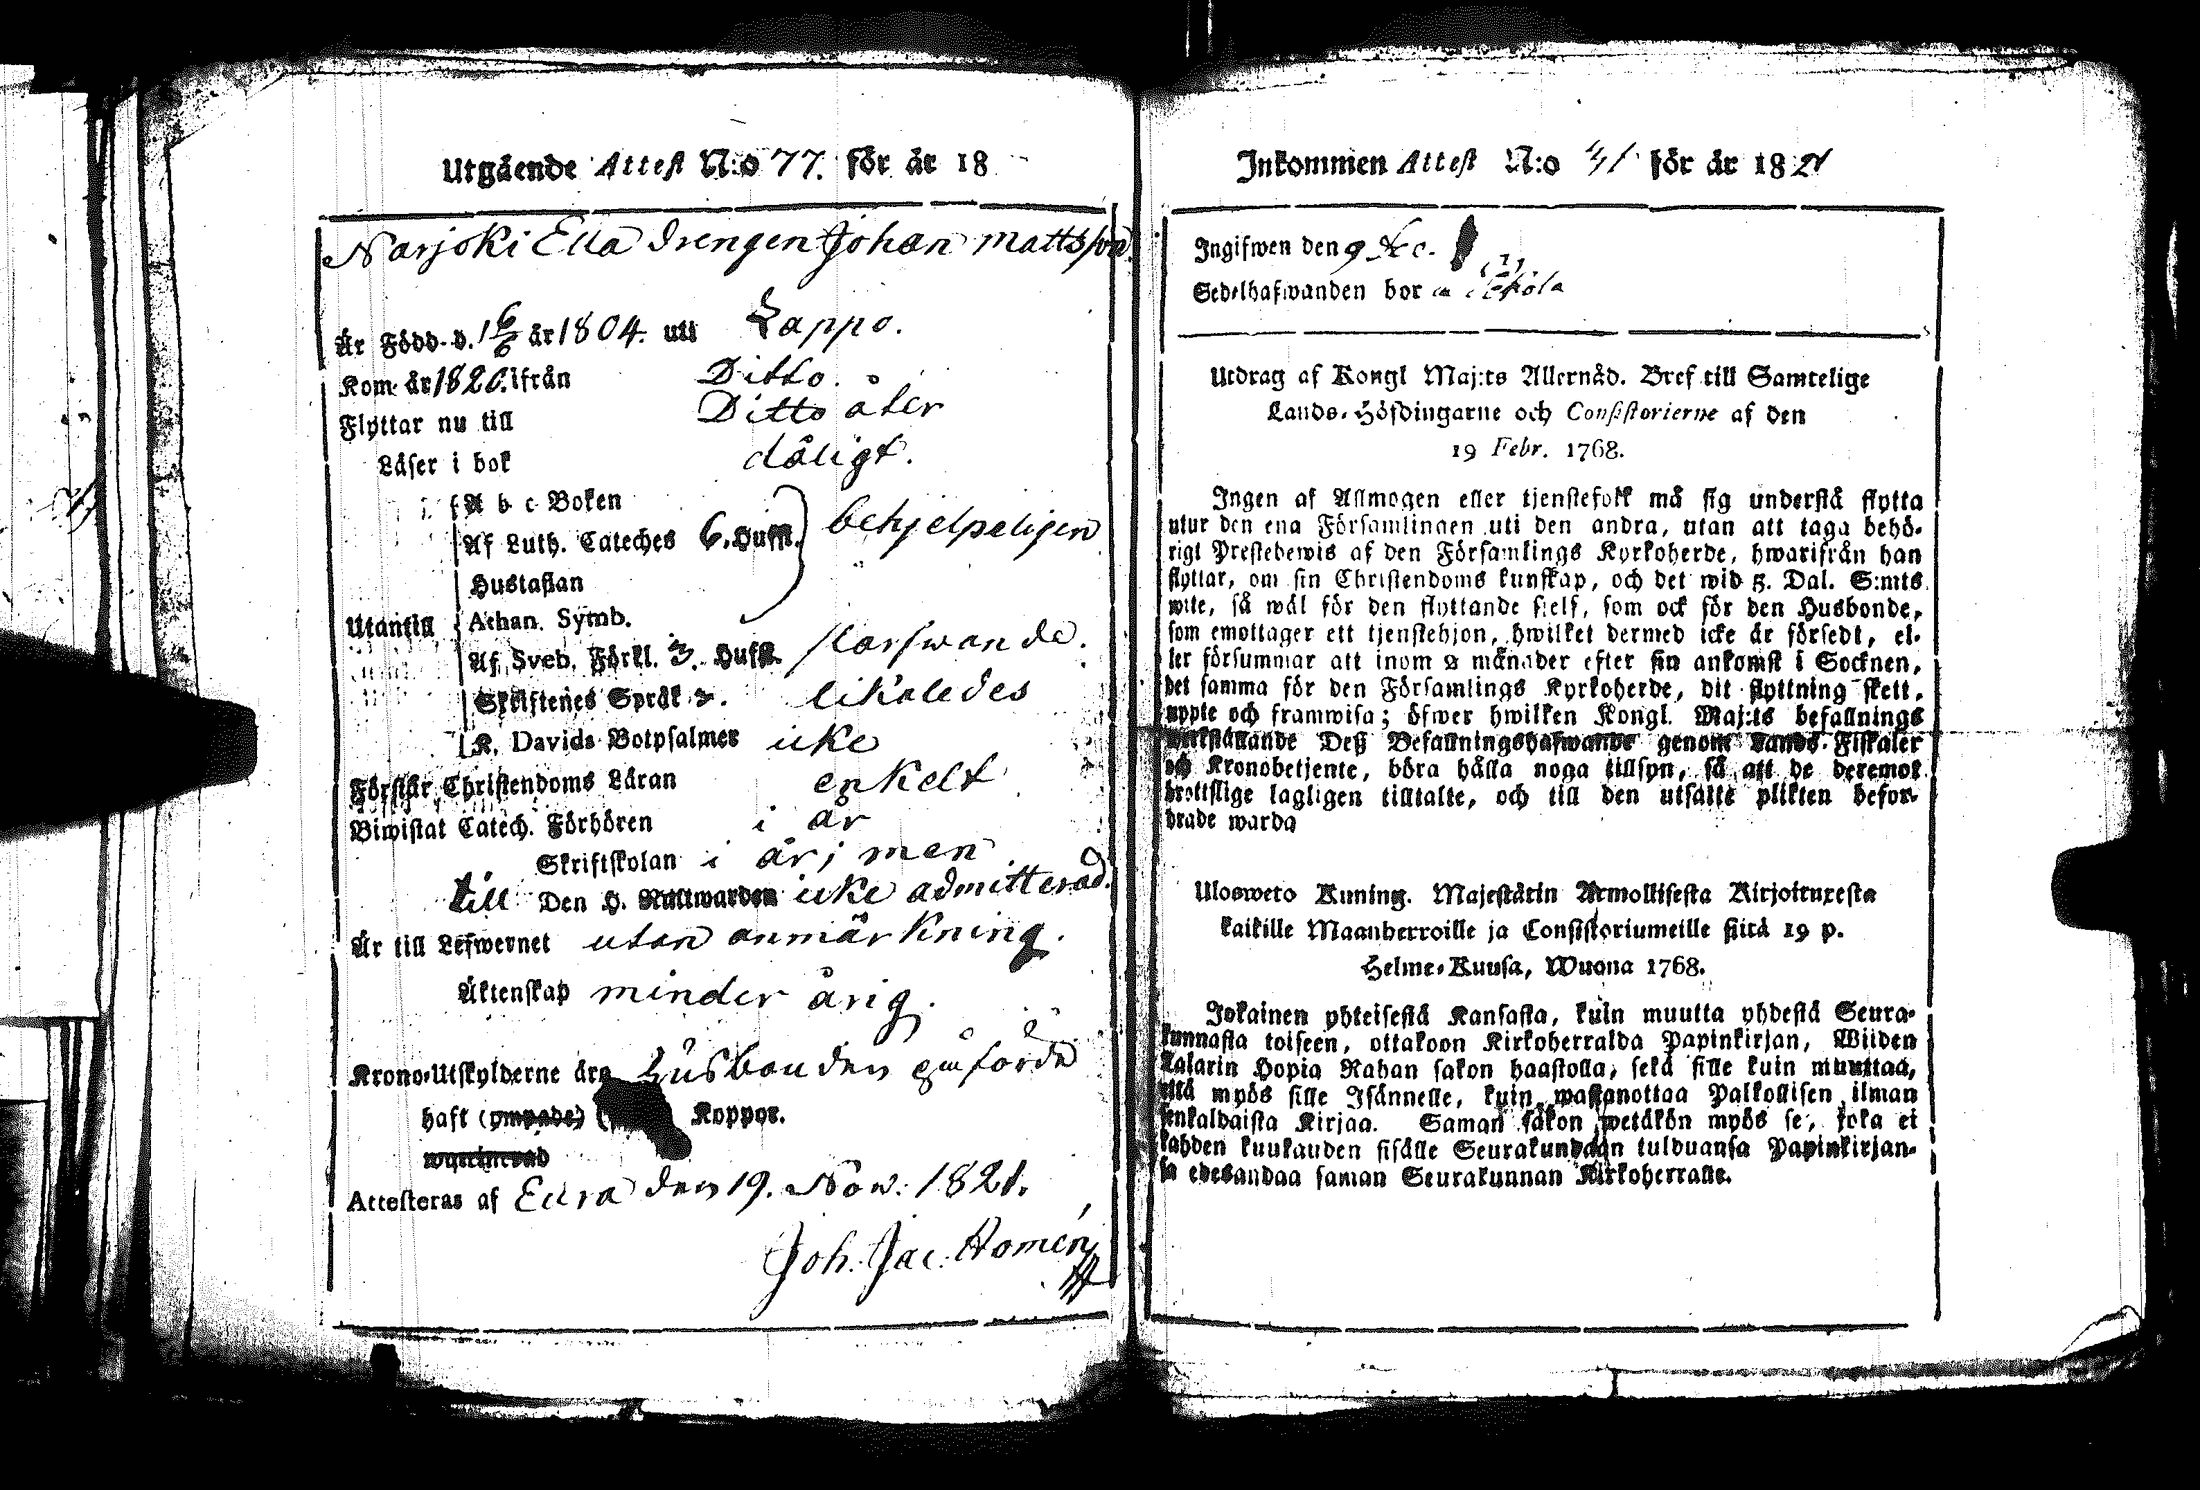 Utgående Attest N:o 77. för år 18
Narjoki Ella drengen Johan Mattsson
Är Född d. 16/6 år 1804. uti Lappo.
Kom år 1820. ifrån Ditto.
Flyttar nu till Ditto åter
Läser i bok dåligt.
A b c Boken
Af Luth. Cateches 6. Huffst. behjelpeligen
Hustaflan
Utantill Athan. Symb.
Af Sveb. Förkl. 3. Huffst. starfwande.
Skriftenes Språk likaledes
K. Davids Botpsalmer icke
Förstår Christendoms Läran enkelt
Biwistat Catech. Förhören i år
Skriftskolan i år; men
till Den H. Nattwarden icke admitterad.
Är till Lefwernet utan anmärkning.
Äktenskap minder årig.
Krono-Utskylderne äro husbonden påförde
haft (ympade) Koppor.
waccinerad
Attesteras af Eura den 19. Nov: 1821.
Joh. Jac. Homén
Inkommen Attest N:o för år 1821
Ingifwen den 9 Dec.
Sedelhafwanden bor
Utdrag af Kongl Maj:ts Allernåd. Bref till Samtelige
Lands-Höfdingarne och Consistorierne af den
19 Febr. 1768.
Ingen af Allmogen eller tjenstefolk må sig understå flytta
utur den ena Församlingen uti den andra, utan att taga behö-
rigt Prestebewis af den Församlings Kyrkoherde, hwarifrån han
flyttar, om sin Christendoms kunskap, och det wid 5. Dal. S:mts
wite, så wäl för den flyttande sielf, som ock för den Husbonde,
som emottager ett tjenstehjon, hwilket dermed icke är försedt, el-
ler försummar att inom 2 månader efter sin ankomst i Socknen,
det samma för den Församlings Kyrkoherde, dit flyttning skett,
uppte och framwisa; öfwer hwilken Kongl. Maj:ts befallnings
werkställande Deß Befallningshafwande genom Lands-Fiskaler
och Kronobetjente, böra hålla noga tillsyn, så att de deremot
brottslige lagligen tilltalte, och till den utsatte plikten befor-
drade warda
Ulosweto Kuning. Majestätin Armollisesta Kirjoituxesta
kaikille Maanherroille ja Consistoriumeille siitä 19 p.
Helme-Kuusa, Wuona 1768.
Jokainen yhteisestä Kansasta, kuin muutta yhdestä Seura-
kunnasta toiseen, ottakoon Kirkoherralda Papinkirjan, Wiiden
Talarin Hopia Rahan sakon haastolla, sekä sille kuin muuttaa,
että myös sille Isännelle, kuin wastanottaa Palkollisen ilman
senkaldaista Kirjaa. Saman sakon wetäkön myös se, joka ei
kahden kuukauden sisälle Seurakundaan tulduansa Papinkirjan-
sa edesandaa saman Seurakunnan Kirkoherralle.